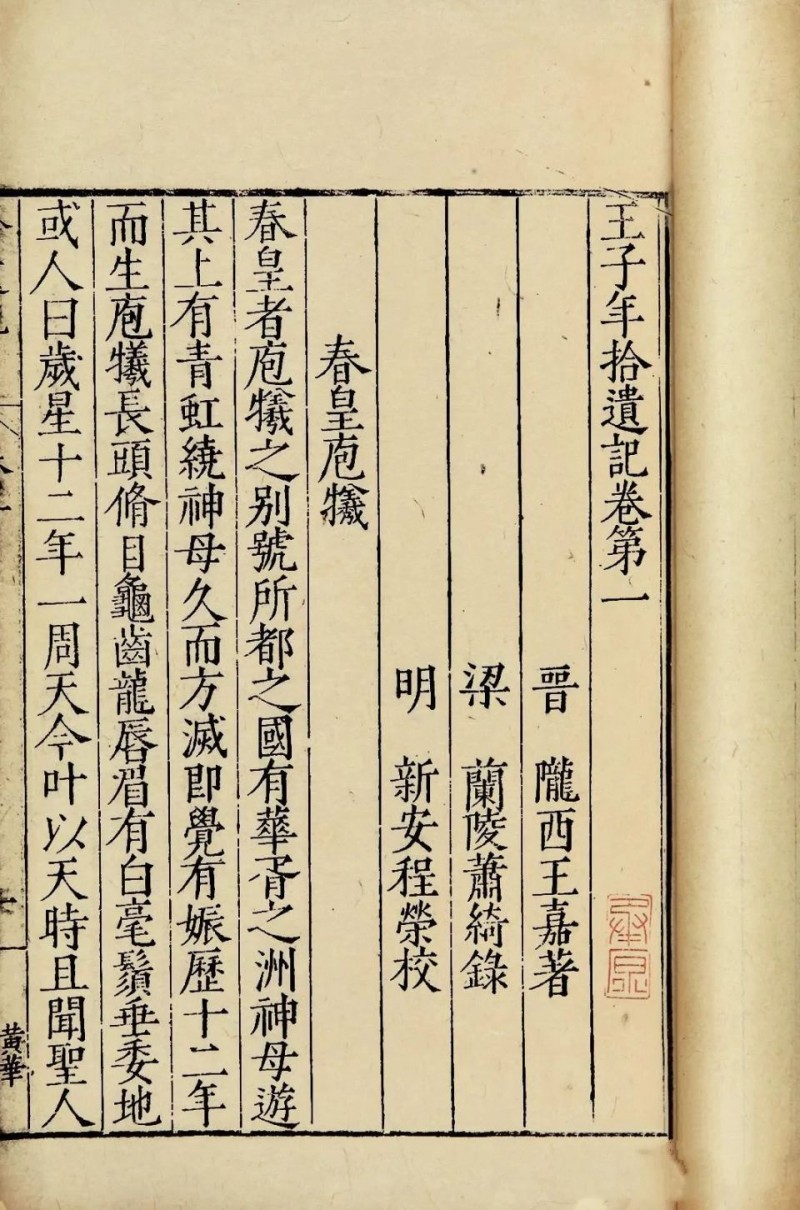 王子年拾遺記卷第一
晉 隴西王嘉著
梁 蘭陵蕭綺錄
明 新安程榮校
春皇庖犧
春皇者庖犧之别號所都之國有華胥之洲神母遊
其上有青虹繞神母久而方滅即覺有娠歷十二年
而生庖犧長頭脩目龜齒龍唇眉有白毫鬚垂委地
或人曰歲星十二年一周天今叶以天時且聞聖人
黃華